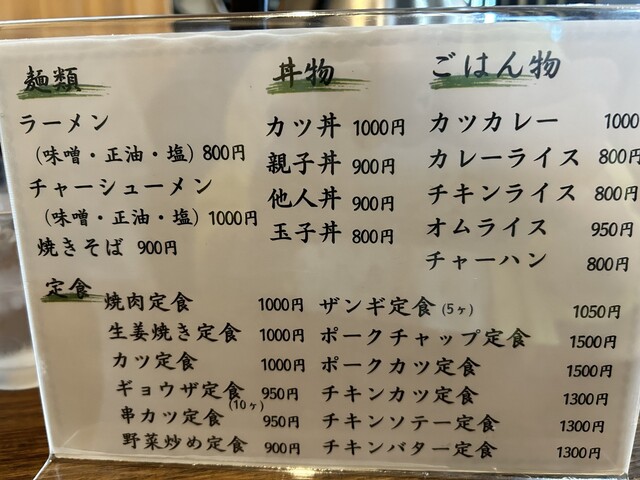 麺類
ラーメン
(味噌・正油・塩) 800円
チャーシューメン
(味噌・正油・塩) 1000円
焼きそば 900円
丼物
カツ丼 1000円
親子丼 900円
他人丼 900円
玉子丼 800円
ごはん物
カツカレー 1000
カレーライス 800円
チキンライス 800円
オムライス 950円
チャーハン 800円
定食
焼肉定食 1000円
生姜焼き定食 1000円
カツ定食 1000円
ギョウザ定食 950円
(10ヶ)
串カツ定食 950円
野菜炒め定食 900円
ザンギ定食 (5ヶ) 1050円
ポークチャップ定食 1500円
ポークカツ定食 1500円
チキンカツ定食 1300円
チキンソテー定食 1300円
チキンバター定食 1300円